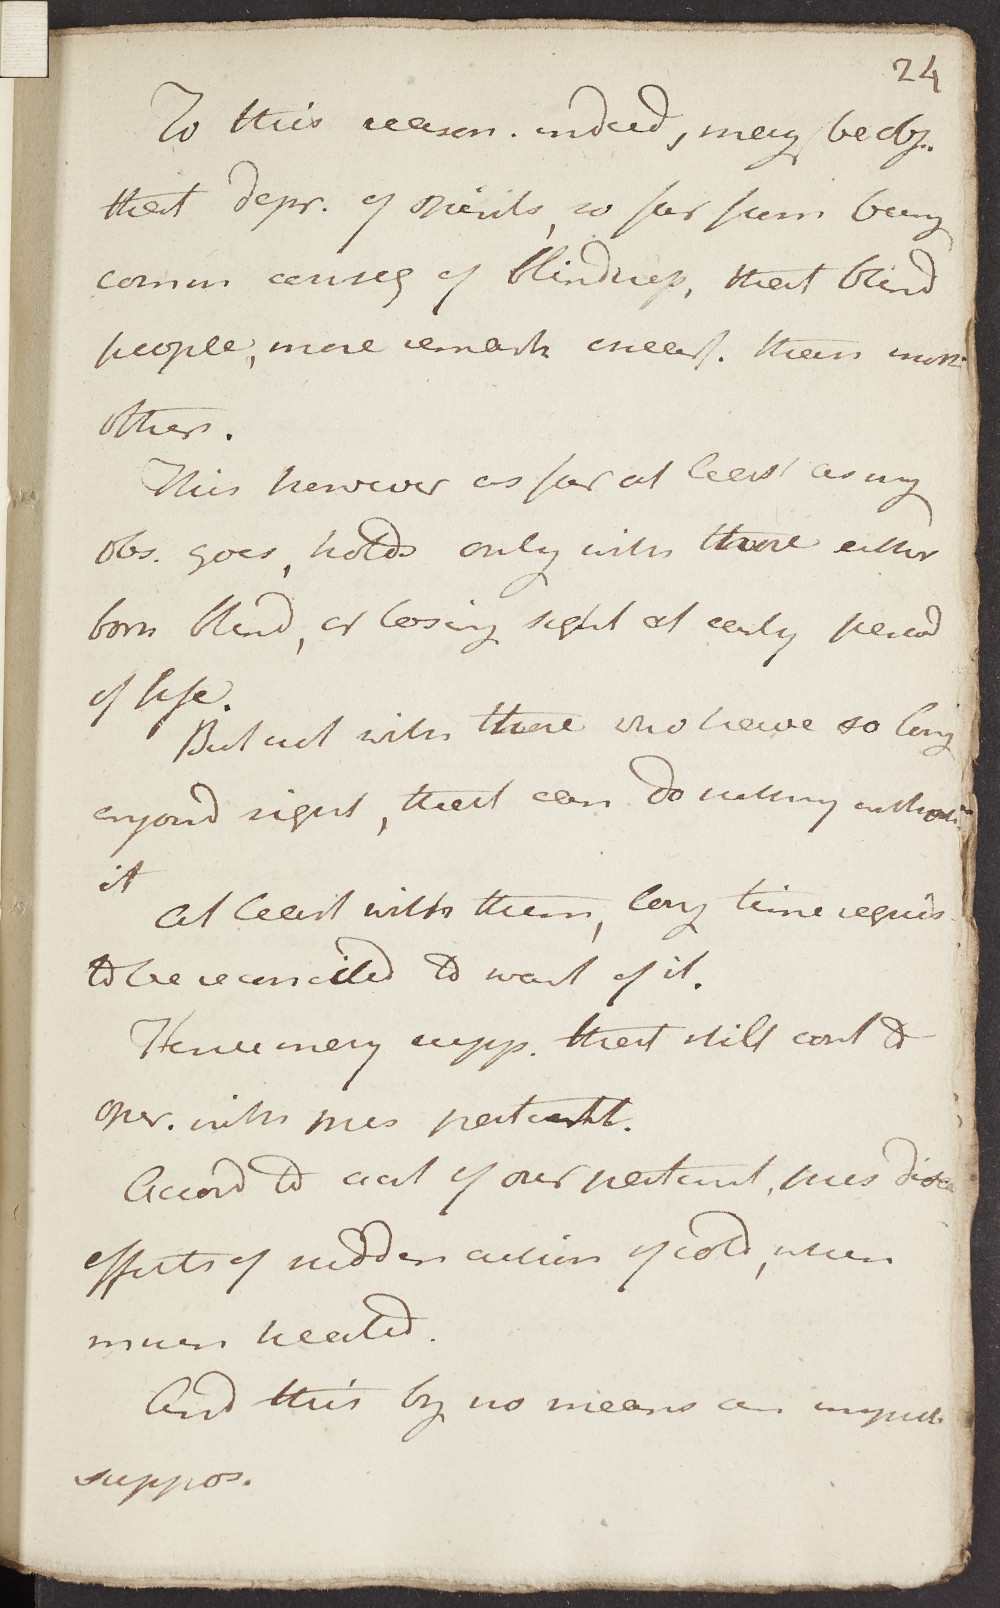 24
To this reason. indeed, may be obj.
that depr. of spirits, so far from being
comm causes of blindness, that blind
people, more remark cheerf. than most
others.
This however as far at least as my
obs. goes, holds only with those either
born blind, or losing sight at early period
of life.
But not with those who have so long
enjoyd sight, that can do nothing without
it
At least with them, long time requis
to be reconciled to want of it.
Hence may supp. that still cont to
oper. with pres patient.
Accord to acct of our patient, pres disea
effects of sudden action of cold, when
much heated.
And this by no means an improb
suppos.